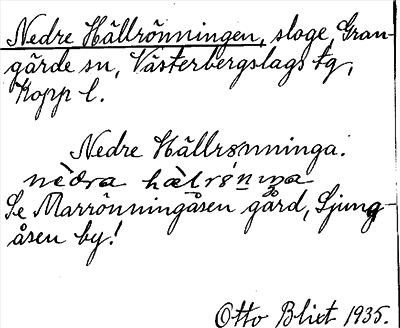 Nedre Hällrönningen, sloge, Gran-
gärde sn, Västerbergslags tg,
Kopp l.
Nedre Hällrønninga.
nèdra hàlrǿnıŋa
Se Marrönningåsen gård, Ljung-
åsen by!
Otto Blixt 1935.